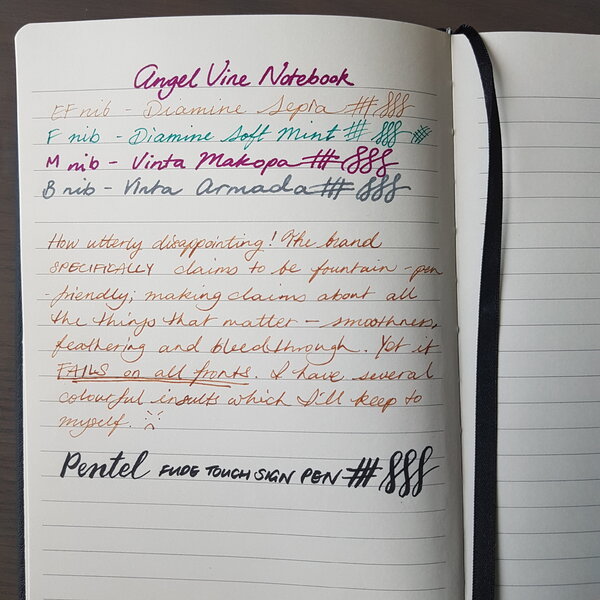 Angel Vine Notebook
EF nib - Diamine Sepia
F nib - Diamine Soft Mint
M nib - Vinta Makopa
B nib - Vinta Armada
How utterly disappointing! The brand
SPECIFICALLY claims to be fountain-pen
-friendly; making claims about all
the things that matter - smoothness,
feathering and bleedthrough. Yet it
FAILS on all fronts. I have several
colourful insults which I'll keep to
myself.
Pentel FUDE TOUCH SIGN PEN